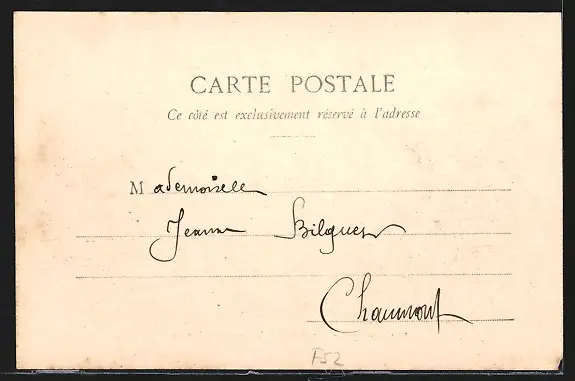 CARTE POSTALE
Ce côté est exclusivement réservé à l'adresse
Mademoiselle
Jeanne Bilguer
Chaumont
F52